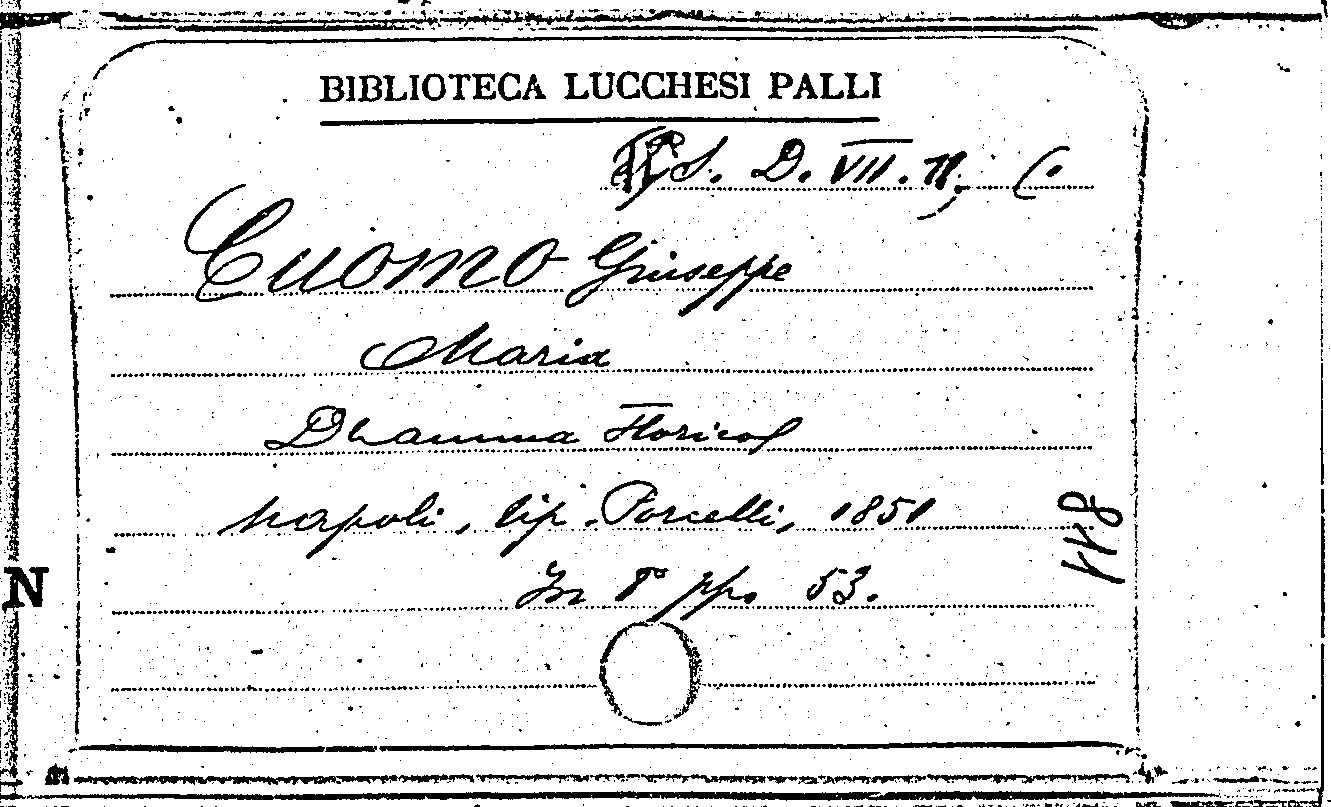 BIBLIOTECA LUCCHESI PALLI
S. D. VII. 11, 6.
CUOMO Giuseppe
Maria
Dramma Storico
Napoli, tip. Porcelli, 1851
In 8° pp. 53.
448
N